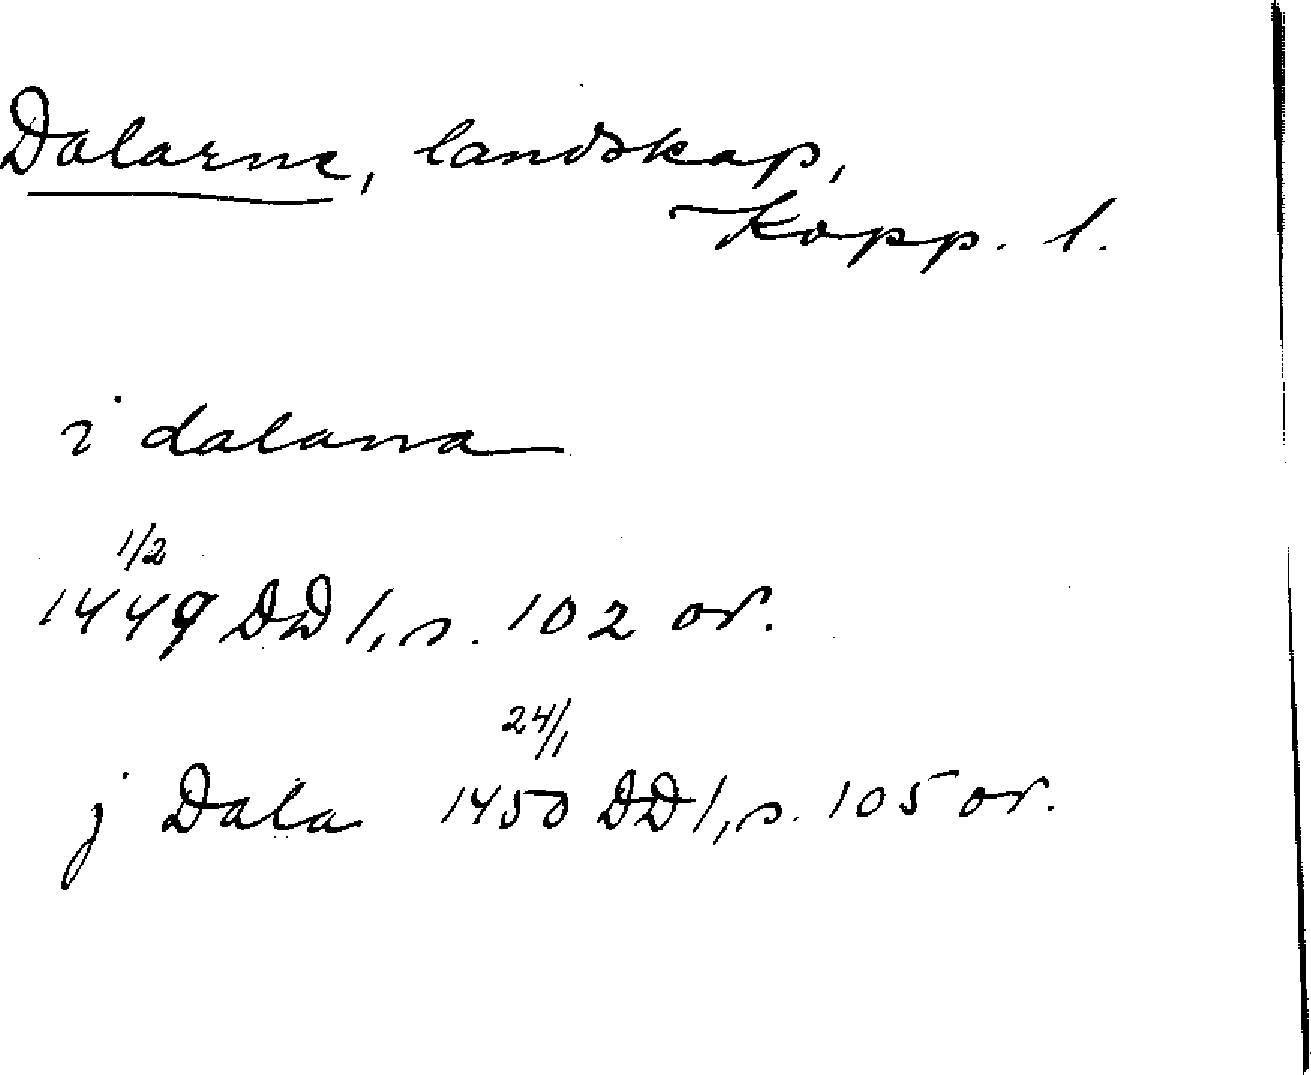 Dalarne, landskap,
Kopp. l.
i dalana
1/2
1449 DD 1, s. 102 or.
24/1
j Dala 1450 DD 1, s. 105 or.